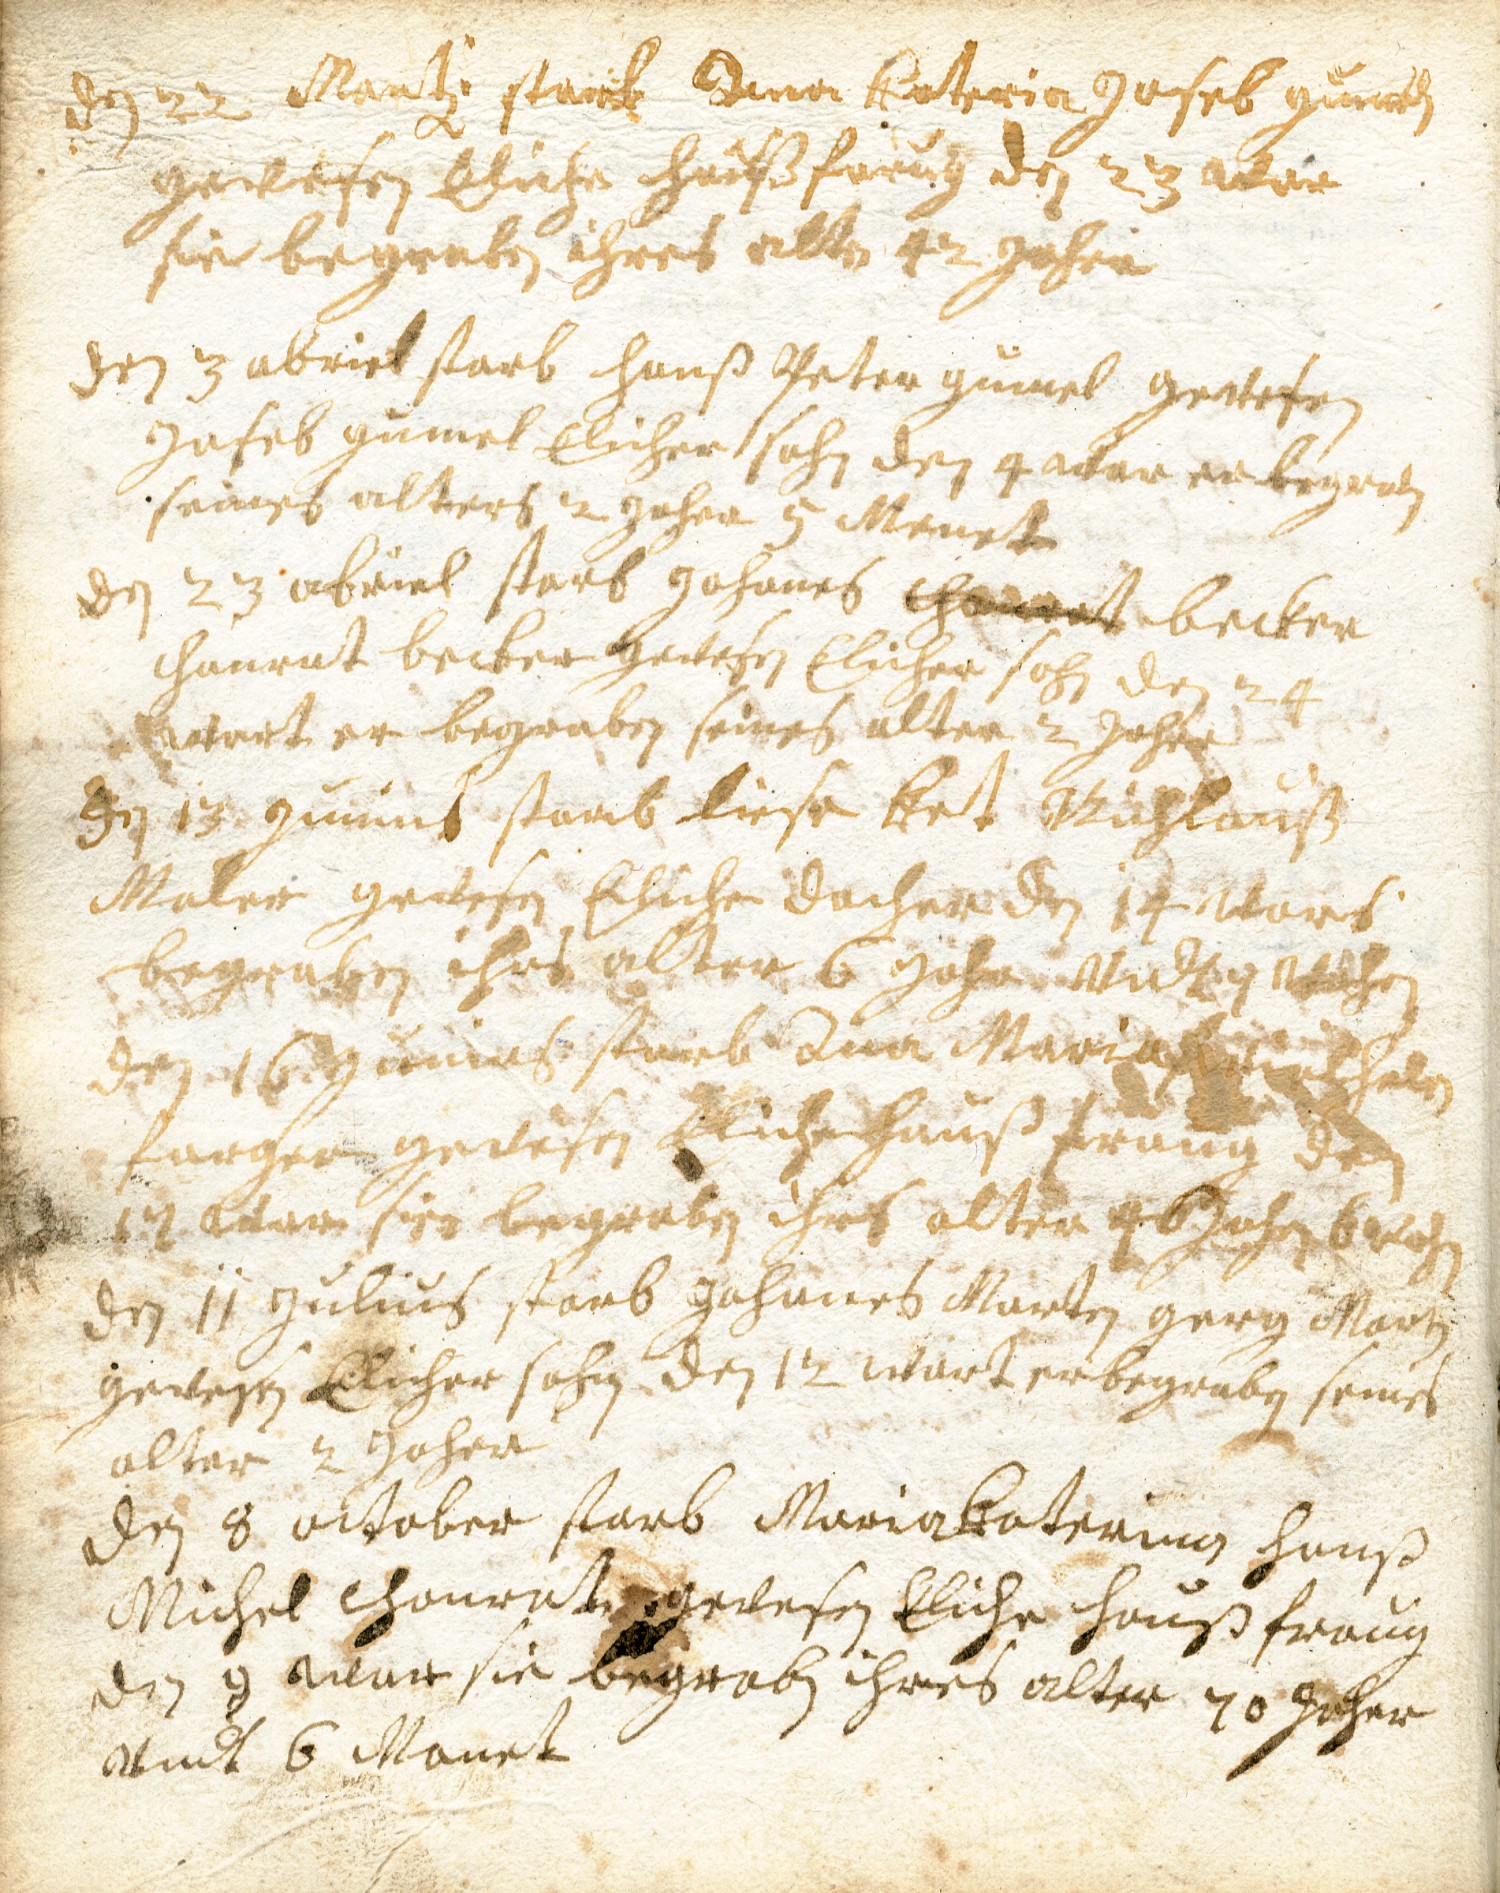 den 22 Martz starb Anna Kateria Joseb gumel
gewesen Eliche haußfraug den 23 war
sie begraben ihres alter 42 Jaher
den 3 abriel starb hanß Peter gumel gewesen
Joseb gumel Elicher sohn den 4 war er begraben
seines alters 2 Jaher 5 Monet
den 23 abriel starb Johanes becker
chonrat becker gewesen Elicher sohn den 24
wart er begraben seines alter 2 Jaher
den 13 Junius starb liese ket Nichlauß
Maler gewesen Eliche docher den 14 wars
begraben ihrs alter 6 Jahr undt 9 wochen
den 16 Junius starb Anna Maria
gewesen Eliche hauß fraug den
17 war sie begraben ihrs alter 46 Jahr 6 wochen
den 11 Julius starb Johanes Marten gerg Marten
gewesen Elicher sohn den 12 wart er begraben seines
alter 2 Jaher
den 8 october starb Maria Katerina hanß
Michel Chonrat gewesen Eliche hauß fraug
den 9 war sie begraben ihres alter 70 Jaher
undt 6 Monet